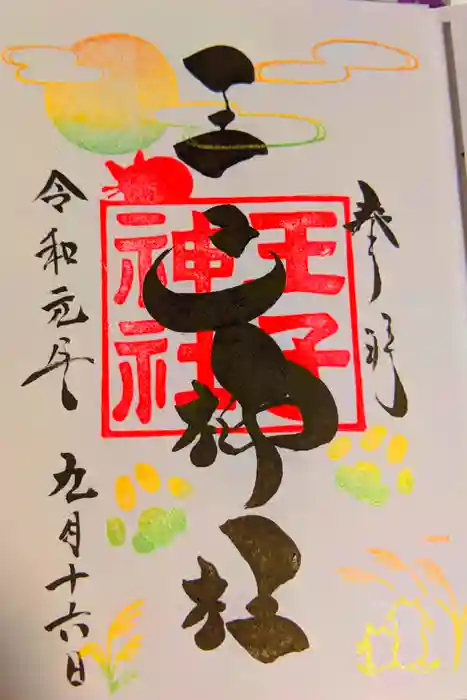 奉拝
王子神社
王子神社
令和元年
九月十六日